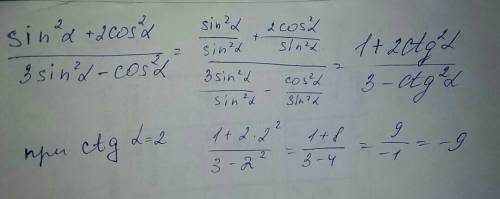 (sin²α + 2cos²α)/(3sin²α − cos²α) = (sin²α/sin²α + 2cos²α/sin²α)/(3sin²α/sin²α − cos²α/sin²α) = (1 + 2ctg²α)/(3 − ctg²α)
при ctg α = 2 (1 + 2·2²)/(3 − 2²) = (1 + 8)/(3 − 4) = 9/−1 = −9